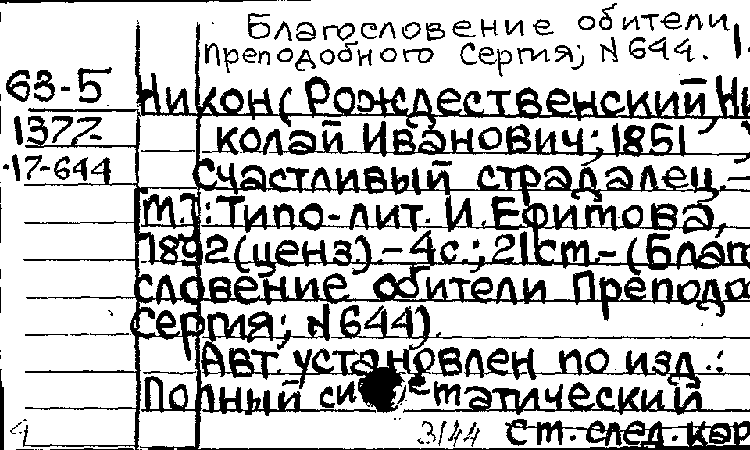 Благословение обители
Преподобного Сергия; N 644.
63-5
Никон (Рождественский, Ни
1377-
колай Иванович; 1851
17-644
Счастливый страдалец. -
[М.]: Типо-лит. И. Ефимова,
1892 (ценз). - 4 с.; 21 см. - (Благо
словение обители Преподо
Сергия; N 644).
Авт. установлен по изд.:
Полный систематический
3144 см. след. кар